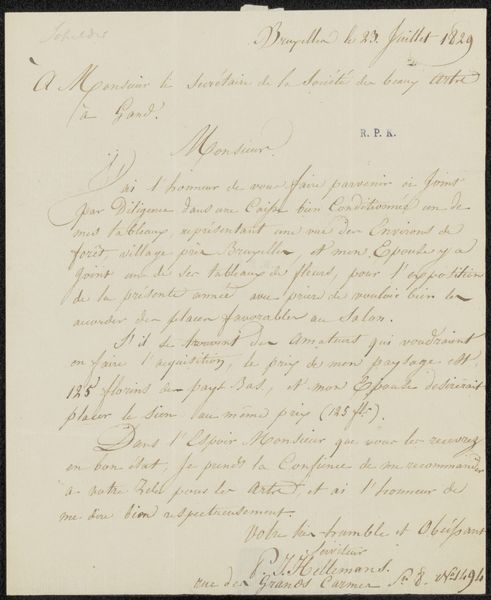 Bruxelles le 23 Juillet 1829
A Monsieur le Secrétaire de la Société des beaux Artes
à Gand.
R. P. K.
Monsieur.
J'ai l'honneur de vous faire parvenir ci joint
par Diligence dans une Caisse bien Conditionnée un de
mes tableaux, représentant une vue des Environs de
forêt, village près Bruxelles, et mon Epouse y a
joint un de ses tableaux de fleurs, pour l'exposition
de la présente année, avec prière de vouloir bien les
accorder des places favorables au Salon.
S'il se trouvent des Amateurs qui voudraient
en faire l'acquisition, le prix de mon paysage est
125 florins des pays Bas, et mon Epouse desirerait
placer le sien au même prix (125 fls).
Dans l'Espoir Monsieur que vous les recevrez
en bon état, Je prends la Confiance de me recommander
à votre Zele pour les Artes, et ai l'honneur de
me dire bien respectueusement.
Votre très humble et Obéissant
Serviteur
P. J. Hellemans.
rue des Grands Carmes Sn 8. No 1494